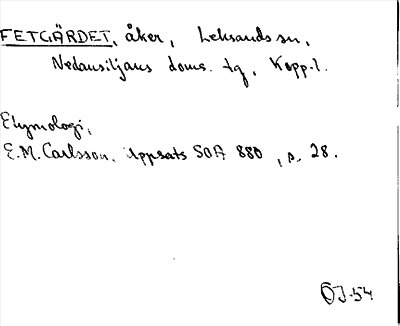 FETGÄRDET, åker, Leksands sn,
Nedansiljans doms. tg, Kopp.l.
Etymologi,
E.M. Carlsson. Uppsats SOA 880, s. 28.
ÖJ-54